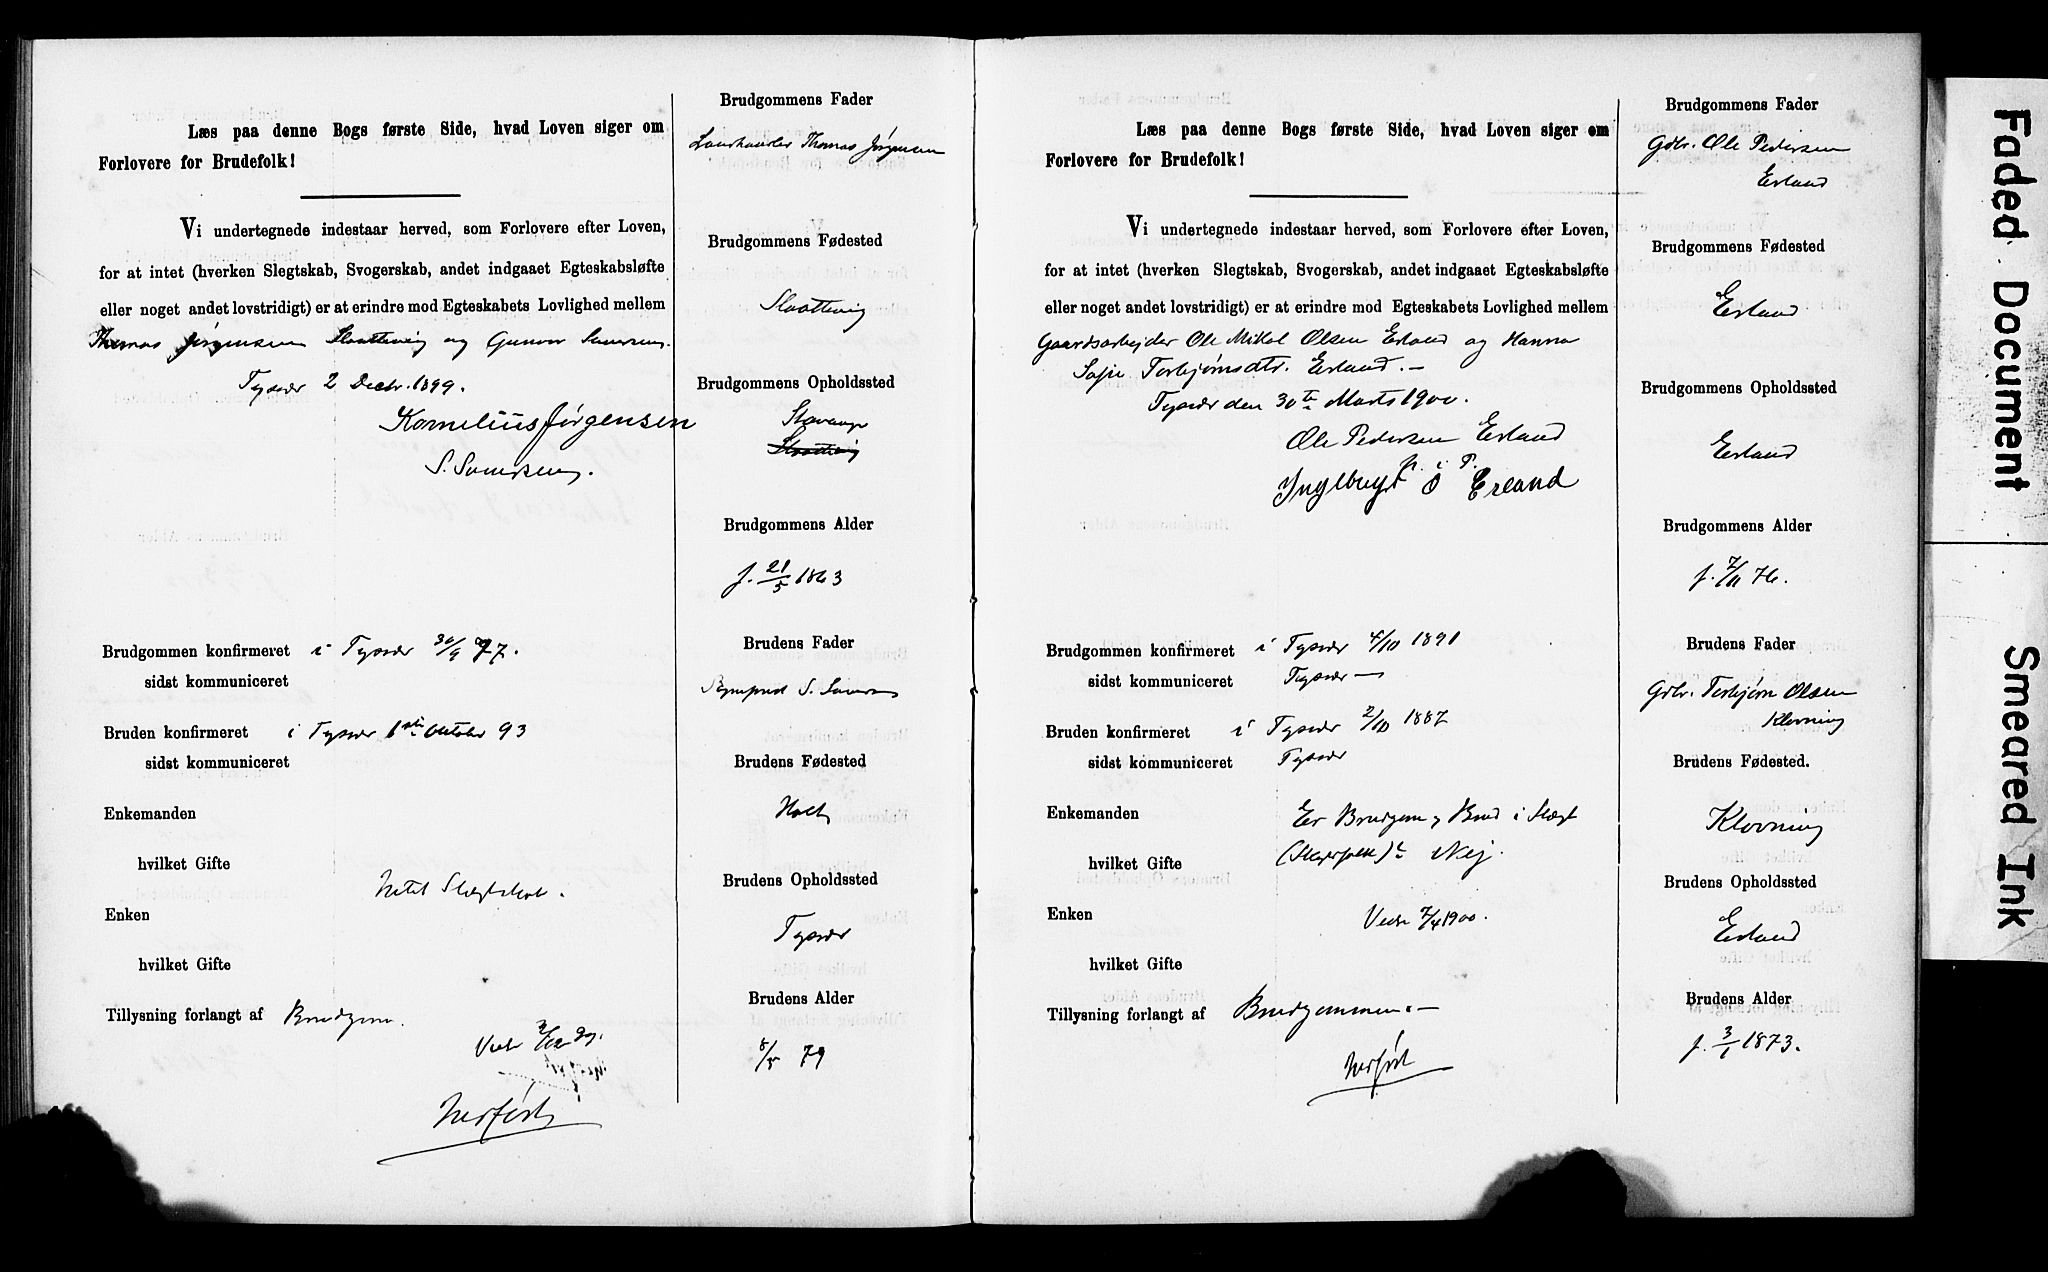 Læs paa denne Bogs første Side, hvad Loven siger om
Forlovere for Brudefolk!
Vi undertegnede indestaar herved, som Forlovere efter Loven,
for at intet (hverken Slegtskab, Svogerskab, andet indgaaet Egteskabsløfte
eller noget andet lovstridigt) er at erindre mod Egteskabets Lovlighed mellem
Thomas Jørgensen Slaattevig og Gunvor
Tysvær 2 Decbr. 1899.
Kornelius Jørgensen
Brudgommen konfirmeret i Tysvær 30/9 77.
sidst kommuniceret
Bruden konfirmeret i Tysvær 1ste Oktober 93
sidst kommuniceret
Enkemanden
hvilket Gifte
Intet Slægtskab.
Enken
hvilket Gifte
Tillysning forlangt af Brudgom.
Indført
Brudgommens Fader
Thomas Jørgensen
Brudgommens Fødested
Slaattevig
Brudgommens Opholdssted
Stavanger
Slaattevig
Brudgommens Alder
f. 21/5 1863
Brudens Fader
Brudens Fødested
Brudens Opholdssted
Tysvær
Brudens Alder
8/5 79
Læs paa denne Bogs første Side, hvad Loven siger om
Forlovere for Brudefolk!
Vi undertegnede indestaar herved, som Forlovere efter Loven,
for at intet (hverken Slegtskab, Svogerskab, andet indgaaet Egteskabsløfte
eller noget andet lovstridigt) er at erindre mod Egteskabets Lovlighed mellem
Gaardsarbejder Ole Mikal Olsen Erland og Hanna
Sofie Torbjørnsdtr. Erland. —
Tysvær den 30te Marts 1900.
Ole Pedersen Erland
P. i P.
Erland
Brudgommen konfirmeret i Tysvær 4/10 1891
sidst kommuniceret Tysvær —
Bruden konfirmeret i Tysvær 2/10 1887
sidst kommuniceret Tysvær
Enkemanden Er Brudgom og Brud i Slægt
hvilket Gifte Nej.
Enken 7/4 1900.
hvilket Gifte
Tillysning forlangt af Brudgommen. —
Indført
Brudgommens Fader
Gdbr. Ole Pedersen
Erland
Brudgommens Fødested
Erland
Brudgommens Opholdssted
Erland
Brudgommens Alder
f. 7/11 76.
Brudens Fader
Gdbr. Torbjørn Olsen
Klovning
Brudens Fødested.
Klovning
Brudens Opholdssted
Erland
Brudens Alder
f. 3/1 1873.
Faded Document
Smeared Ink